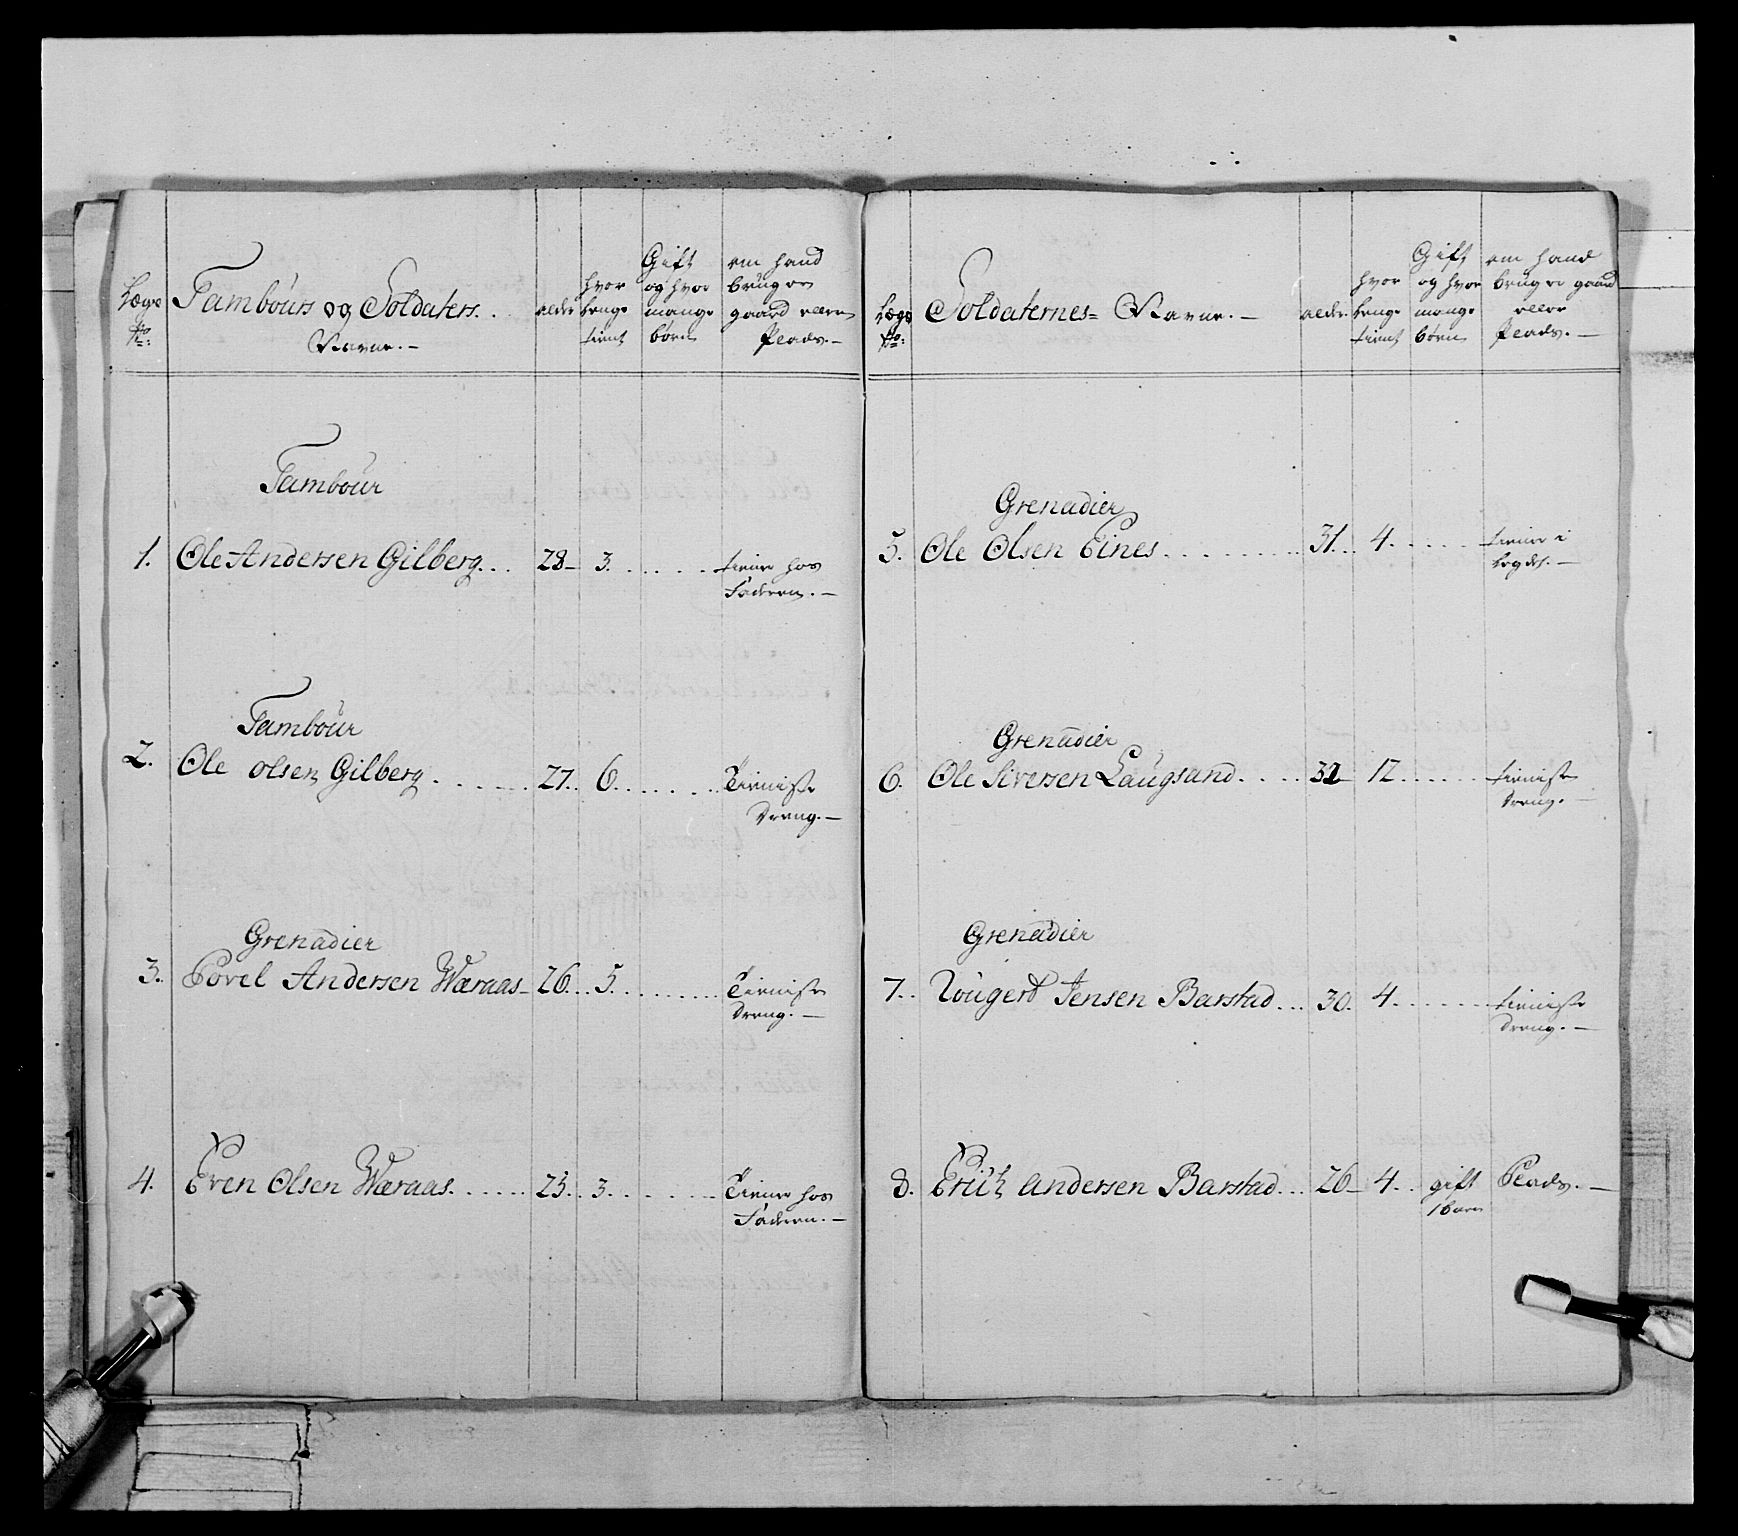 Lægs No: Tambours og Soldaters Navne.— alder hvor lenge tient Gift og hvor mange børn om hand bruger gaard eller Plads.—
Tambour
1. Ole Andersen Gilberg... 28— 3. tiener hos
Faderen.—
Tambour
2. Ole olsen Gilberg 27.. 6. Tieniste
Dreng.—
Grenadier
3. Povel Andersen Wæraas— 26... 5. Tieniste
Dreng.—
4. Even Olsen Wæraas. 25.. 3. Tiener hos
Faderen.—
Lægs No: Soldaternes= Navne.— alder. hvor lenge tient Gift og hvor mange børn om hand bruger gaard eller Plads.—
Grenadier
5. Ole Olsen Eines 31... 4. tiener i
Grenadier
6. Ole Siversen Laugsand 32— 12 tieniste
Dreng.—
Grenadier
7.. Jensen Barstad... 30. 4. tieniste
Dreng.—
8. Erich Andersen Barstad... 26— 4.. gift Plads.—
1 barn